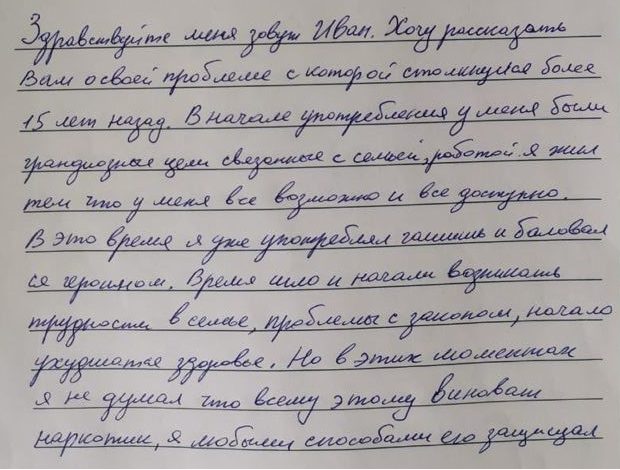 Здравствуйте меня зовут Иван. Хочу рассказать
Вам о своей проблеме с которой столкнулся более
15 лет назад. В начале употребления у меня были
грандиозные цели связанные с семьей, работой. я жил
тем что у меня все возможно и все доступно.
В это время я уже употреблял гашишь и баловал
ся героином. Время шло и начали возникать
трудности в семье, проблемы с законом, начало
ухудшатся здоровье. Но в этих моментах
я не думал что всему этому виноват
наркотик, я любыми способами его защищал